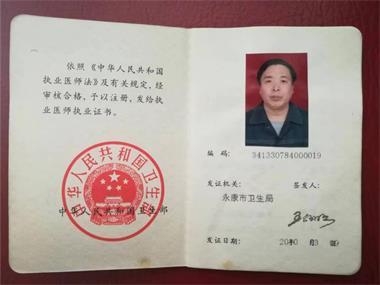 依照《中华人民共和国
执业医师法》及有关规定，经
审核合格，予以注册，发给执
业医师执业证书。
中华人民共和国卫生部
中华人民共和国卫生部
编码：341330784000019
发证机关：
签发人：
永康市卫生局
发证日期：